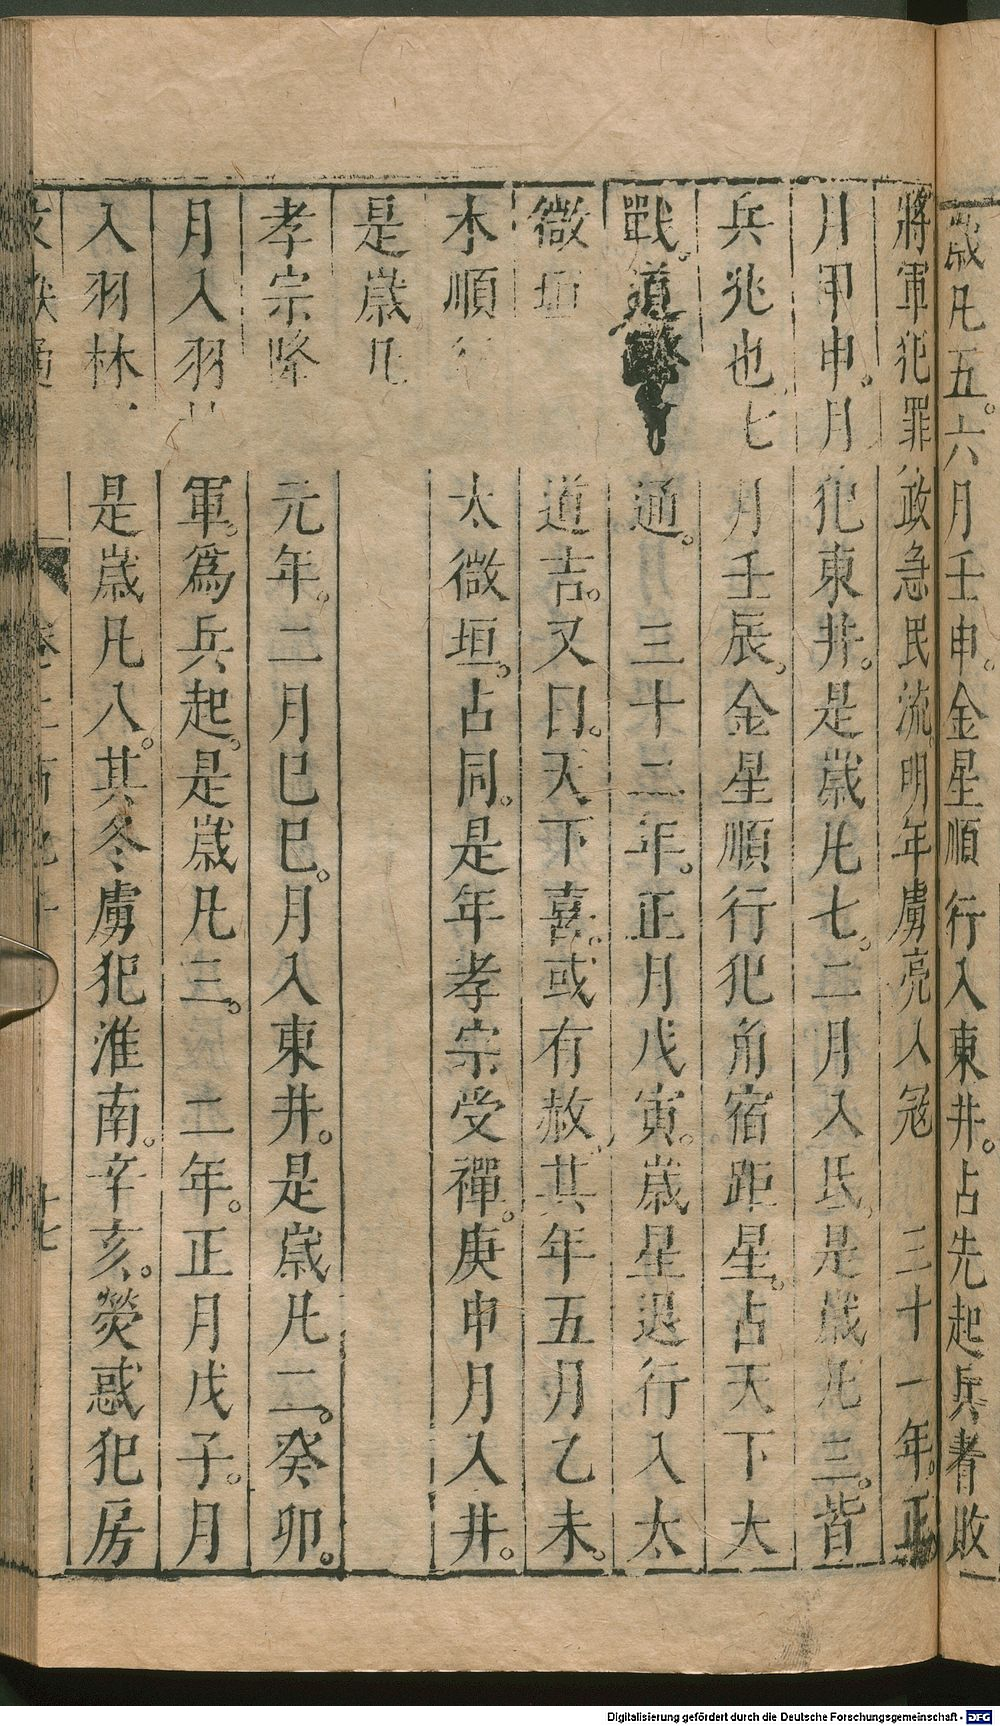 歲凡五。六月壬申。金星順行入東井。占先起兵者敗
將軍犯罪政急民流。明年虜亮入冦　三十一年。正
月甲申。月犯東井。是歲凡七。二月入氐。是歲凡三。皆
兵兆也七月壬辰。金星順行犯角宿距星。占天下大
戰。道通。三十二年。正月戊寅。歲星退行入太
微垣道吉。又曰。天下喜。或有赦。其年五月乙未。
木順太微垣。占同。是年孝宗受禪。庚申月入井。
是歲凡
孝宗隆元年。二月巳巳。月入東井。是歲凡二。癸卯。
月入羽軍。爲兵起。是歲凡三。二年。正月戊子。月
入羽林是歲凡八。其冬虜犯淮南。辛亥。熒惑犯房
十七
Digitalisierung gefördert durch die Deutsche Forschungsgemeinschaft - DFG